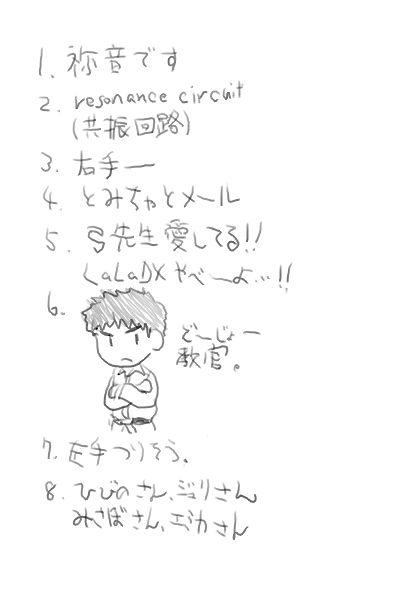 1. 祢音です
2. resonance circuit
(共振回路)
3. 右手ー
4. とみちゃとメール
5. 弓先生愛してる!!
くaLaDX やべーよ…!!
6.
どーじょー
教官。
7. 左手つりそう。
8. ひびのさん、ジュリさん
みさぼさん、エミカさん